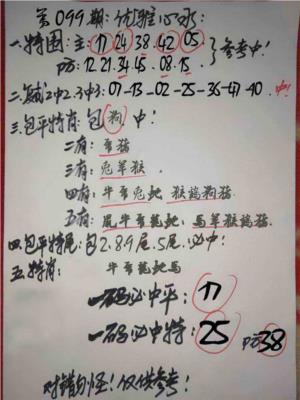 第099期:优雅心水:
一.特围:主:17 24 38 42 05 } 参考中!
防:12.21.34.45.08.15
二.复式2中2.3中3:07-13-02-25-36-47-40.中!
三.包平特肖:包狗中!
二有:
三有:兔羊猴.
四有:牛 兔蛇 猴鸡狗猪.
五有:鼠牛 龍蛇;馬羊猴鸡猪.
四.包平特尾:包2.8.9尾.5尾.必中:
五.特肖: 牛 龍蛇馬
一码必中平:17
一码必中特:25 防38
对错勿怪!仅供参考!